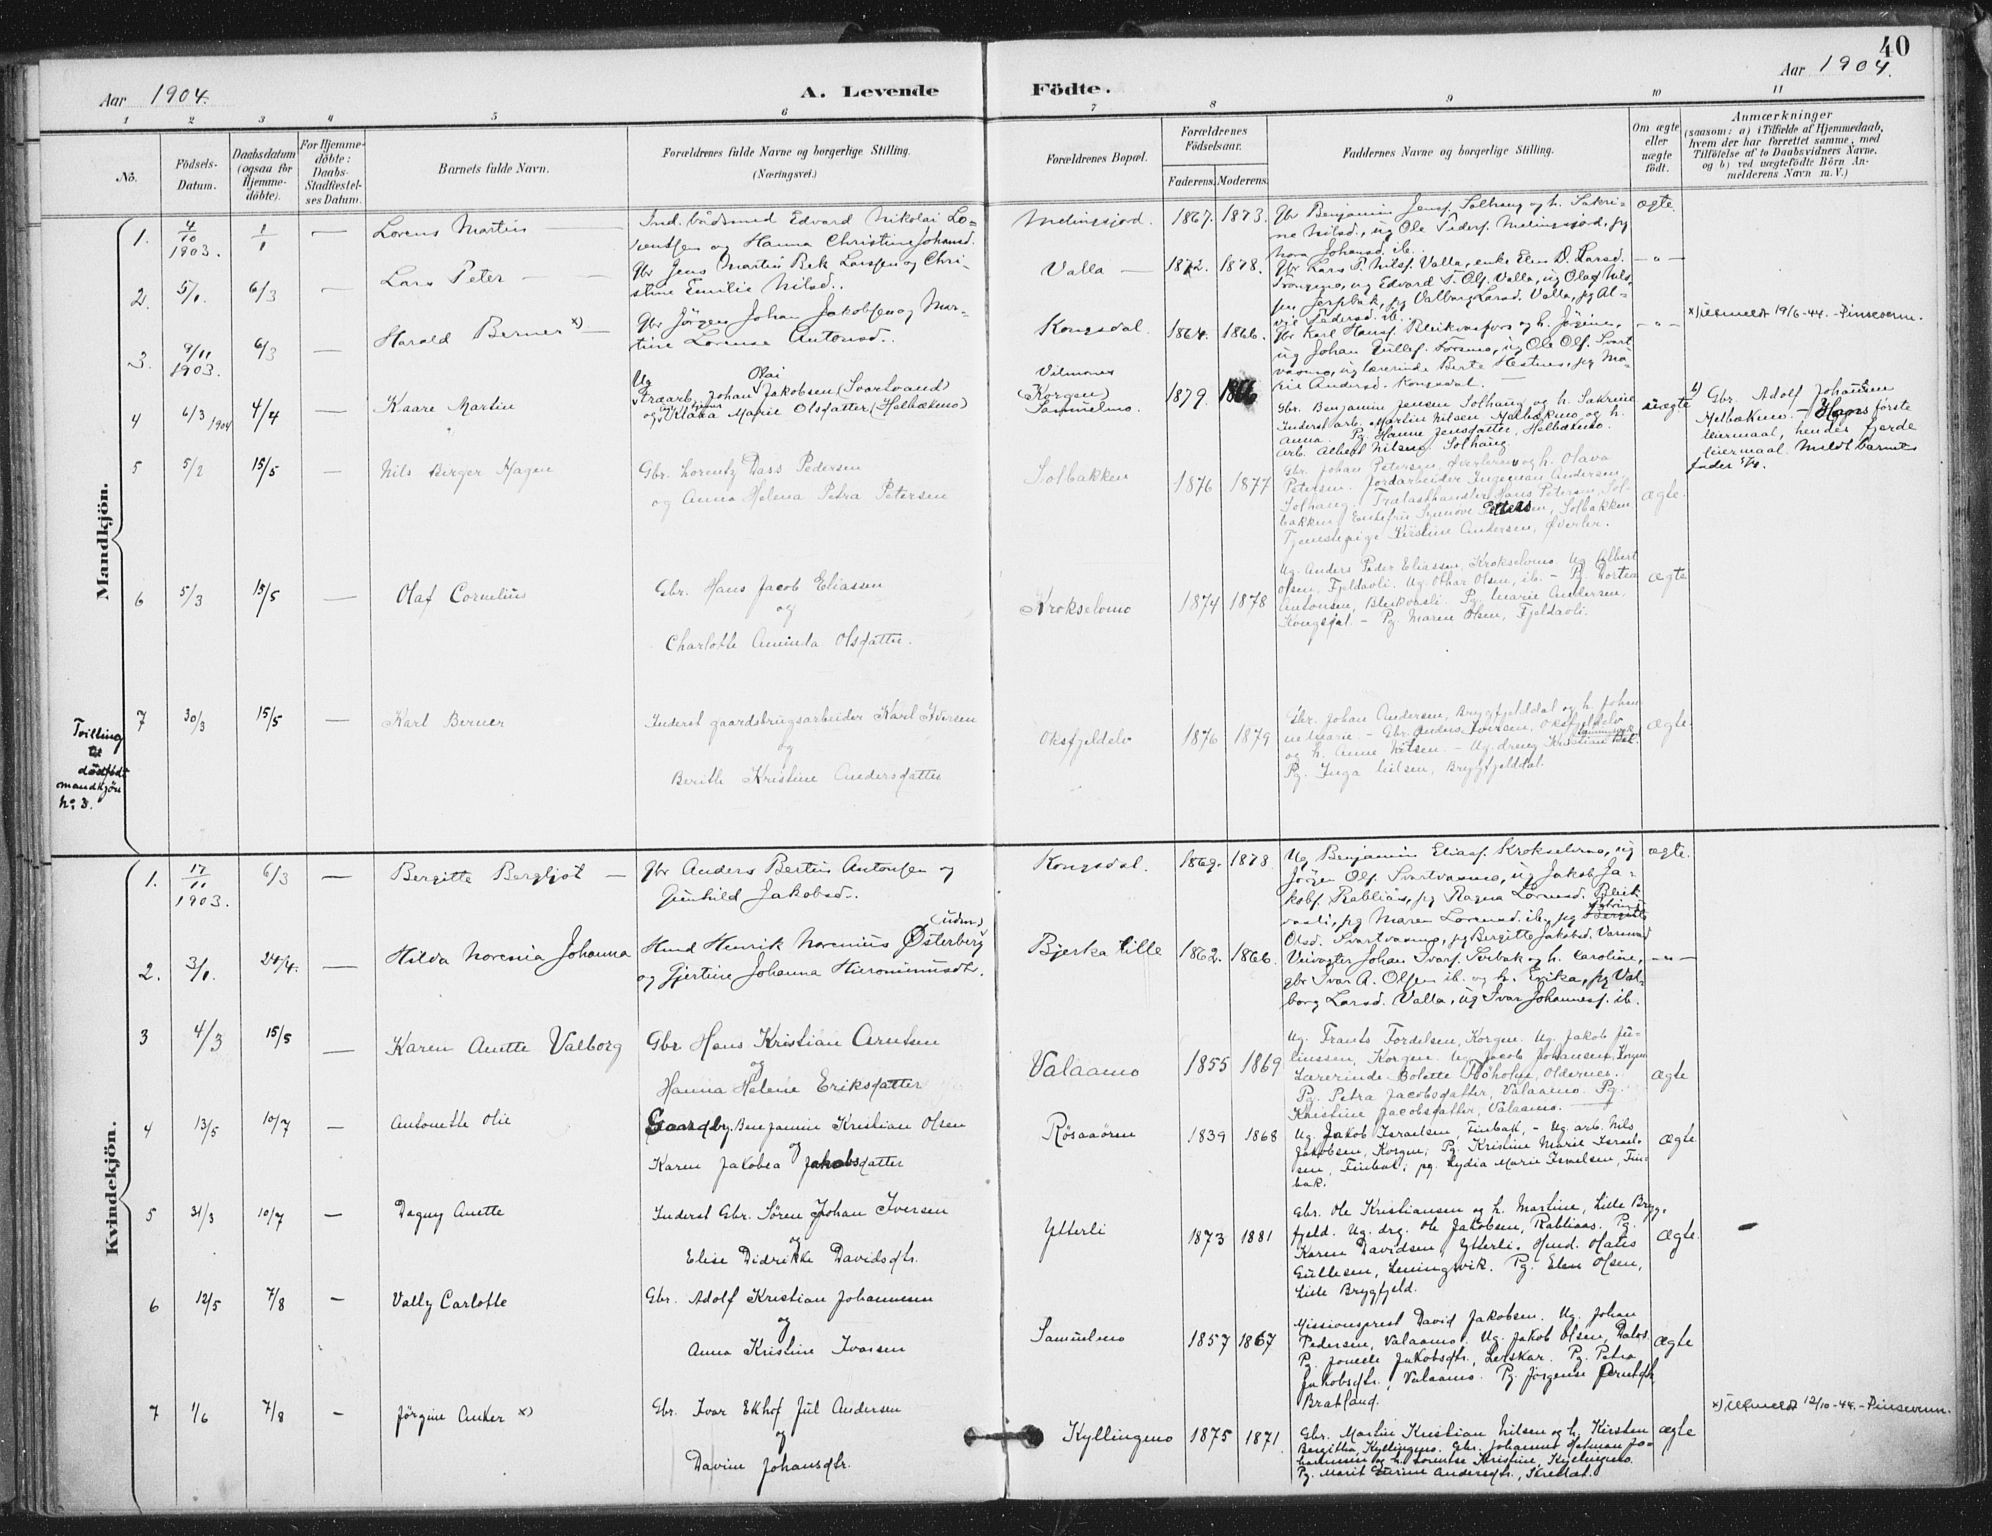 40
Aar 1904.
A. Levende
Födte.
Aar 1904.
1 2 3 4 5 6 7 8 9 10 11
No.
Födsels-Datum.
Daabsdatum (ogsaa for Hjemmedöbte).
For Hjemmedöbte: Daabs-Stadfæstelses Datum.
Barnets fulde Navn.
Forældrenes fulde Navne og borgerlige Stilling.
(Næringsvei.)
Forældrenes Bopæl.
Forældrenes Födselsaar.
Faderens. Moderens.
Faddernes Navne og borgerlige Stilling.
Om ægte eller uægte födt.
Anmærkninger
(saasom: a) i Tilfælde af Hjemmedaab, hvem der har forrettet samme, med Tilföielse af to Daabsvidners Navne, og b) ved uægtefödte Börn Anmelderens Navn m. V.)
Mandkjön.
1. 4/10 1903. 1/1 — Lorens Martin
Ind. baadsmed Edvard Nikolai Lo-
rentsen og Hanna Christine Johansd.
Melingsjord. 1867. 1873.
Gbr Benjamin Jensf. Solhaug og h. Sakri-
ne Nilsd., ug Ole Pedersf. Melingsjord, pg
Nora Johansd. ib.
ægte.
2. 5/1. 6/3 — Lars Peter —
Gbr Jens Martin Bek Larssen og Chri-
stine Emilie Nilsd..
Valla — 1872. 1878.
Gbr Lars P. Nilsf. Valla, enke Elen D. Larsd.
ug Edvard T. Olf. Valla, ug Olaf Nils-
sen Jerpbak, pg Valborg Larsd. Valla, pg Al-
Pedersd. ib.
— " —
3. 9/11 1903. 6/3 — Harald Berner x) —
Gbr Jörgen Johan Jakobsen og Mar-
tine Lorense Antonsd..
Kongsdal. 1864. 1866.
Gbr Karl Hansf. Bleikvasfors og h. Jörgine,
ug Johan Gullef. Forsmo, ug Ole Olf. Svart-
vasmo, ug lærerinde Berte Hestnes, pg Ma-
rie Andersd. Kongsdal. —
— " —
x) Utmeldt 19/6-44. - Pinsevenn.
4 6/3 1904 4/4 Kaare Martin
Ug Straarb. Johan Olai Jakobsen (Svartvand)
og Klara Marie Olsdatter (Helbækmo)
Vilmones
(Korgen)
Samuelmo. 1879. 1866
Gbr. Benjamin Jensen Solhaug og h. Sakrine
Inderst arb. Martin Nilsen Helbækmo og h.
Anna. Pg. Hanne Jensdatter, Helbækmo.
Arb. Albert Nilsen, Solhaug
uægte
b) Gbr. Adolf Johansen
Helbækmo. — Hans förste
leiermaal, hendes fjerde
leiermaal. Meldt barnets
fader
5 5/2 15/5 Nils Berger Hagen
Gbr. Lorentz Dass Pedersen
og Anna Helena Petra Petersen
Solbakken 1876 1877
Gbr. Johan Petersen, Øverleren og h. Olava
Petersen. Jordarbeider Ingeman Andersen,
Solhaug. Trælasthandler Hans Petersen, Sol-
bakken, Enkefru Synnöve Petersen, Solbakken
Tjenestepige Kirstine Andersen, Øverler.
ægte.
6 5/3 15/5 — Olaf Cornelius
Gbr. Hans Jacob Eliassen
og
Charlotte Aminda Olsdatter.
Krokselvmo 1874 1878
Ug. Anders Peder Eliassen, Krokselvmo Ug Albert
Olsen, Fjeldavli. Ug. Othar Olsen, ib. — Pg Dortea
Antonsen, Bleikvasli. Pg. Marie Andersen,
Kongsdal. — Pg. Maren Olsen, Fjeldavli.
ægte
Tvilling
til
dödfödt
mandkjön
no 3.
7 30/3 15/5 — Karl Berner
Inderst gaardsbrugsarbeider Karl Iversen
og
Berith Kristine Andersdatter
Oksfjeldelv 1876 1879
Gbr. Johan Andersen, Brygfjelddal og h. Johan-
ne Marie. — Gbr. Anders Iversen, Oksfjeldelv
og h. Anne Nilsen. — Ug. dreng Kristian
Pg. Inga Nilsen, Brygfjelddal.
ægte
Kvindekjön.
1. 17/11 1903. 6/3 — Bergitte Bergljot —
Gbr Anders Bertin Antonsen og
Gunhild Jakobsd..
Kongsdal. 1869. 1878.
Ug Benjamin Eliasf. Krokselvmo, ug
Jörgen Olf. Svartvasmo, ug Jakob Ja-
kobf. Rabliaas, pg Ragna Lorensd. Bleik-
vasli, pg Maren Lorensd. ib., pg
Olsd. Svartvasmo, pg Bergitte Jakobsd.
ægte.
2. 3/1. 24/4. — Hilda Norenia Johanna
Hmd Henrik Norenius Østerberg
og Gjertine Johanna Hieronimusdtr.
Bjerka lille 1862. 1866.
Veivogter Johan Ivarf. Lerbak og h. Caroline,
gbr Ivar A. Olsen ib. og h. Erika, pg Val-
borg Larsd. Valla, ug Ivar Johannesf. ib.
— " —
3 4/3 15/5 — Karen Anette Valborg
Gbr. Hans Kristian Arntsen
og
Hanna Helene Eriksdatter
Valaamo 1855 1869
Ug. Frants Fordelsen, Korgen. Ug. Jakob Ju-
liussen, Korgen. Ug. Jacob Johansen, Korgen
Lærerinde Bolette Höholm, Oldernes.
Pg. Petra Jacobsdatter, Valaamo. Pg.
Kristine Jacobsdatter, Valaamo.
ægte
4 13/5 10/7 — Antonette Olie
Gaardbr. Benjamin Kristian Olsen
og
Karen Jakobea Jakobsdatter
Rösaaören 1839 1868
Ug. Jakob Israelsen, Finbak, — Ug. arb. Nils
Jakobsen, Korgen; Pg. Kristine Marie Israel-
sen, Finbak; pg. Lydia Marie Israelsen, Fin-
bak.
ægte
5 31/3 10/7 — Dagny Anette
Inderst Gbr. Sören Johan Iversen
og
Elise Didrikke Davidsdtr.
Ytterli 1873 1881
Gbr. Ole Kristiansen og h. Martine, Lille Bryg-
fjeld. Ug. drg. Ole Jakobsen, Rabliaas. Pg.
Karen Davidsen, Ytterli. Hmd. Hans
Gullesen, Leningsvik. Pg. Elen Olsen,
Lille Brygfjeld.
ægte.
6 12/5 7/8 — Vally Carlotte
Gbr. Adolf Kristian Johannesen
og
Anna Kristine Ivarsen
Samuelmo 1857 1867
Missionsprest David Jakobsen. Ug. Johan
Pedersen, Valaamo. Ug. Jakob Olsen,
Pg. Jakobsdtr., Lerskar. Pg. Petra
Jakobsdtr., Valaamo. Pg. Jörgense Arntsdtr,
Bratland.
ægte
7 1/6 7/8 — Jörgine Anker x)
Gbr. Ivar Ekhof Jul Andersen
og
Davine Johansdtr.
Kyllingmo 1875 1871
Gbr. Martin Kristian Nilsen og h. Kirsten
Bergitha, Kyllingmo. Gbr. Johannes Herman Jo-
hannesen og h. Lorentse Kristine, Kyllingmo.
Pg. Marit Andersdtr.,
ægte
x) Utmeldt 12/10-44. - Pinsevenn.